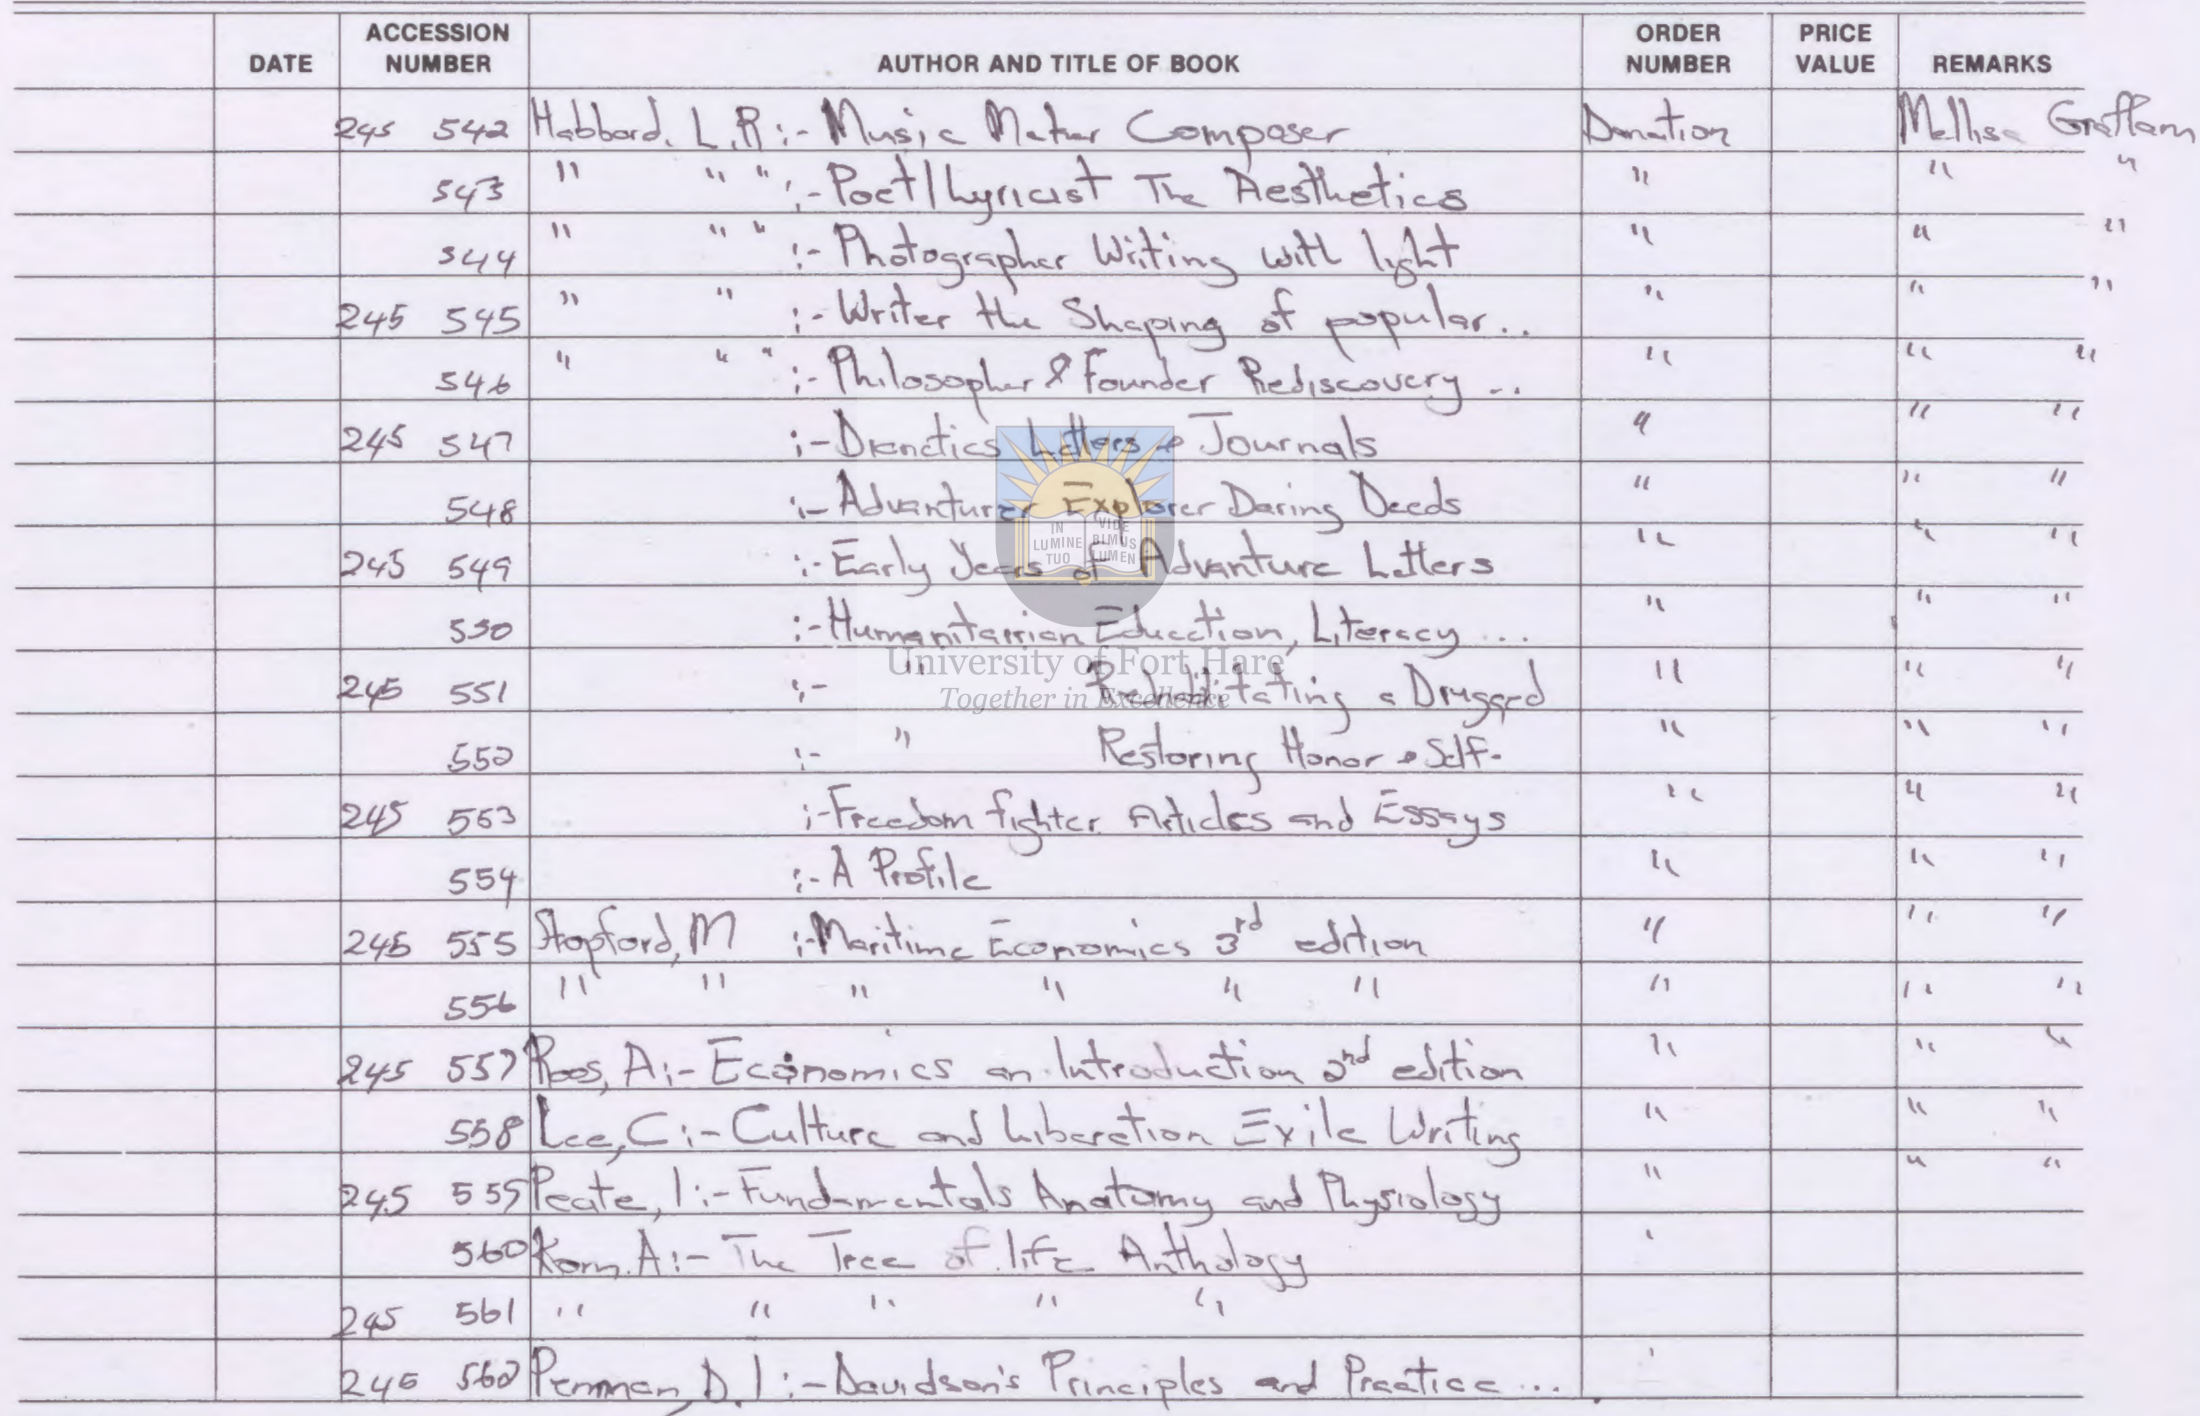 DATE ACCESSION NUMBER AUTHOR AND TITLE OF BOOK ORDER NUMBER PRICE VALUE REMARKS
245 542 Habbard, L.R :- Music Maker Composer Donation Mellisa Graffam
543 " " " :- Poet/Lyricist The Aesthetics " " "
544 " " " :- Photographer Writing with light " " "
245 545 " " :- Writer the Shaping of popular.. " " "
546 " " " :- Philosopher & Founder Rediscovery ... " " "
245 547 :- Dianetics Letters & Journals " " "
548 :- Advanturer Explorer Daring Deeds " " "
245 549 :- Early Years of Advanture Letters " " "
550 :- Humanitarrian Education, Literacy ... " " "
245 551 :- " Rehabilitating a Drugged " " "
552 :- " Restoring Honor & Self- " " "
245 553 :- Freedom fighter Articles and Essays " " "
554 :- A Profile " " "
245 555 Stopford, M :- Maritime Economics 3rd edition " " "
556 " " " " " " " " "
245 557 Roos, A :- Economics an Introduction 2nd edition " " "
558 Lee, C :- Culture and Liberation Exile Writing " " "
245 559 Peate, I :- Fundamentals Anatomy and Physiology " " "
560 Korn. A :- The Tree of life Anthology
245 561 " " " " "
245 562 Penman, D. I :- Davidson's Principles and Practice ...
IN LUMINE TUO VIDE BIMUS LUMEN
University of Fort Hare
Together in Excellence